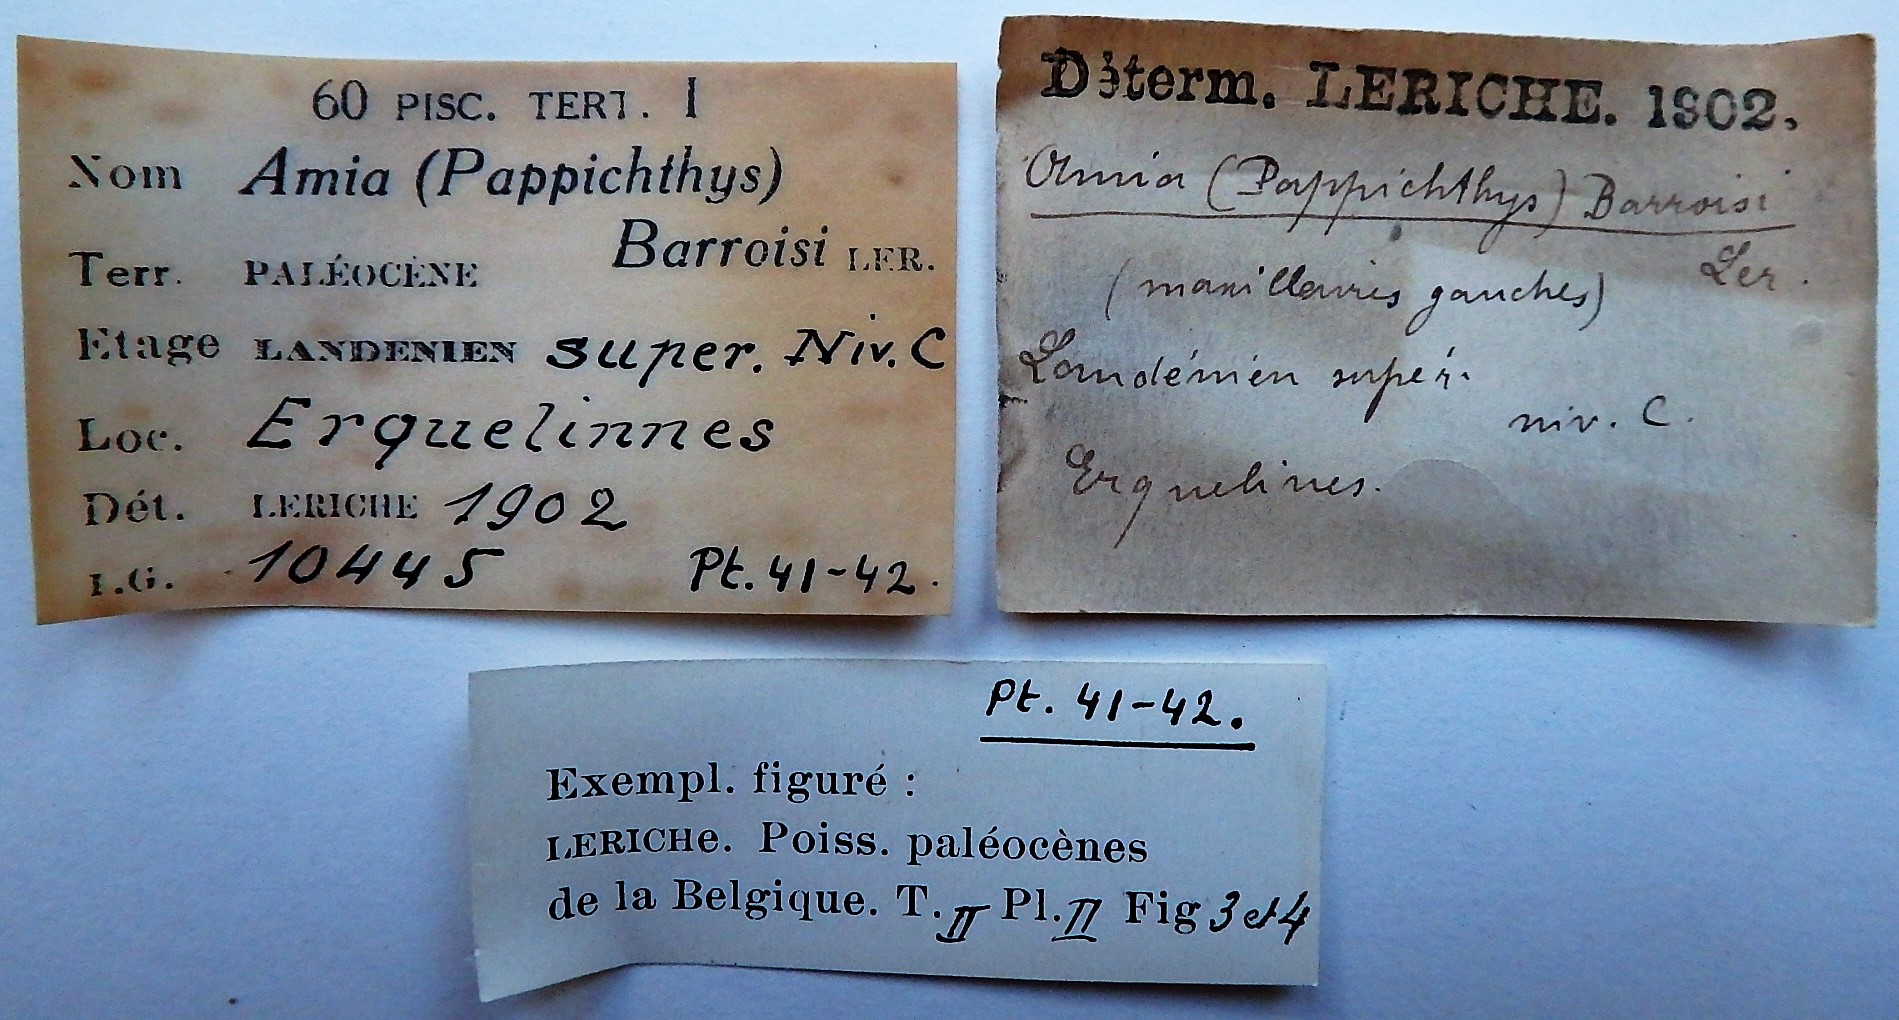 60 PISC. TERT. I
Nom Amia (Pappichthys)
Barroisi LER.
Terr. PALÉOCÈNE
Etage LANDENIEN super. Niv. C
Loc. Erquelinnes
Dét. LERICHE 1902
I.G. 10445 Pt. 41-42.
Déterm. LERICHE. 1902.
Amia (Pappichthys) Barroisi
Ler.
(maxillaires gauches)
Landénien supér.
niv. C.
Erquelines.
Pt. 41-42.
Exempl. figuré :
LERICHe. Poiss. paléocènes
de la Belgique. T. II Pl. II Fig 3 et 4